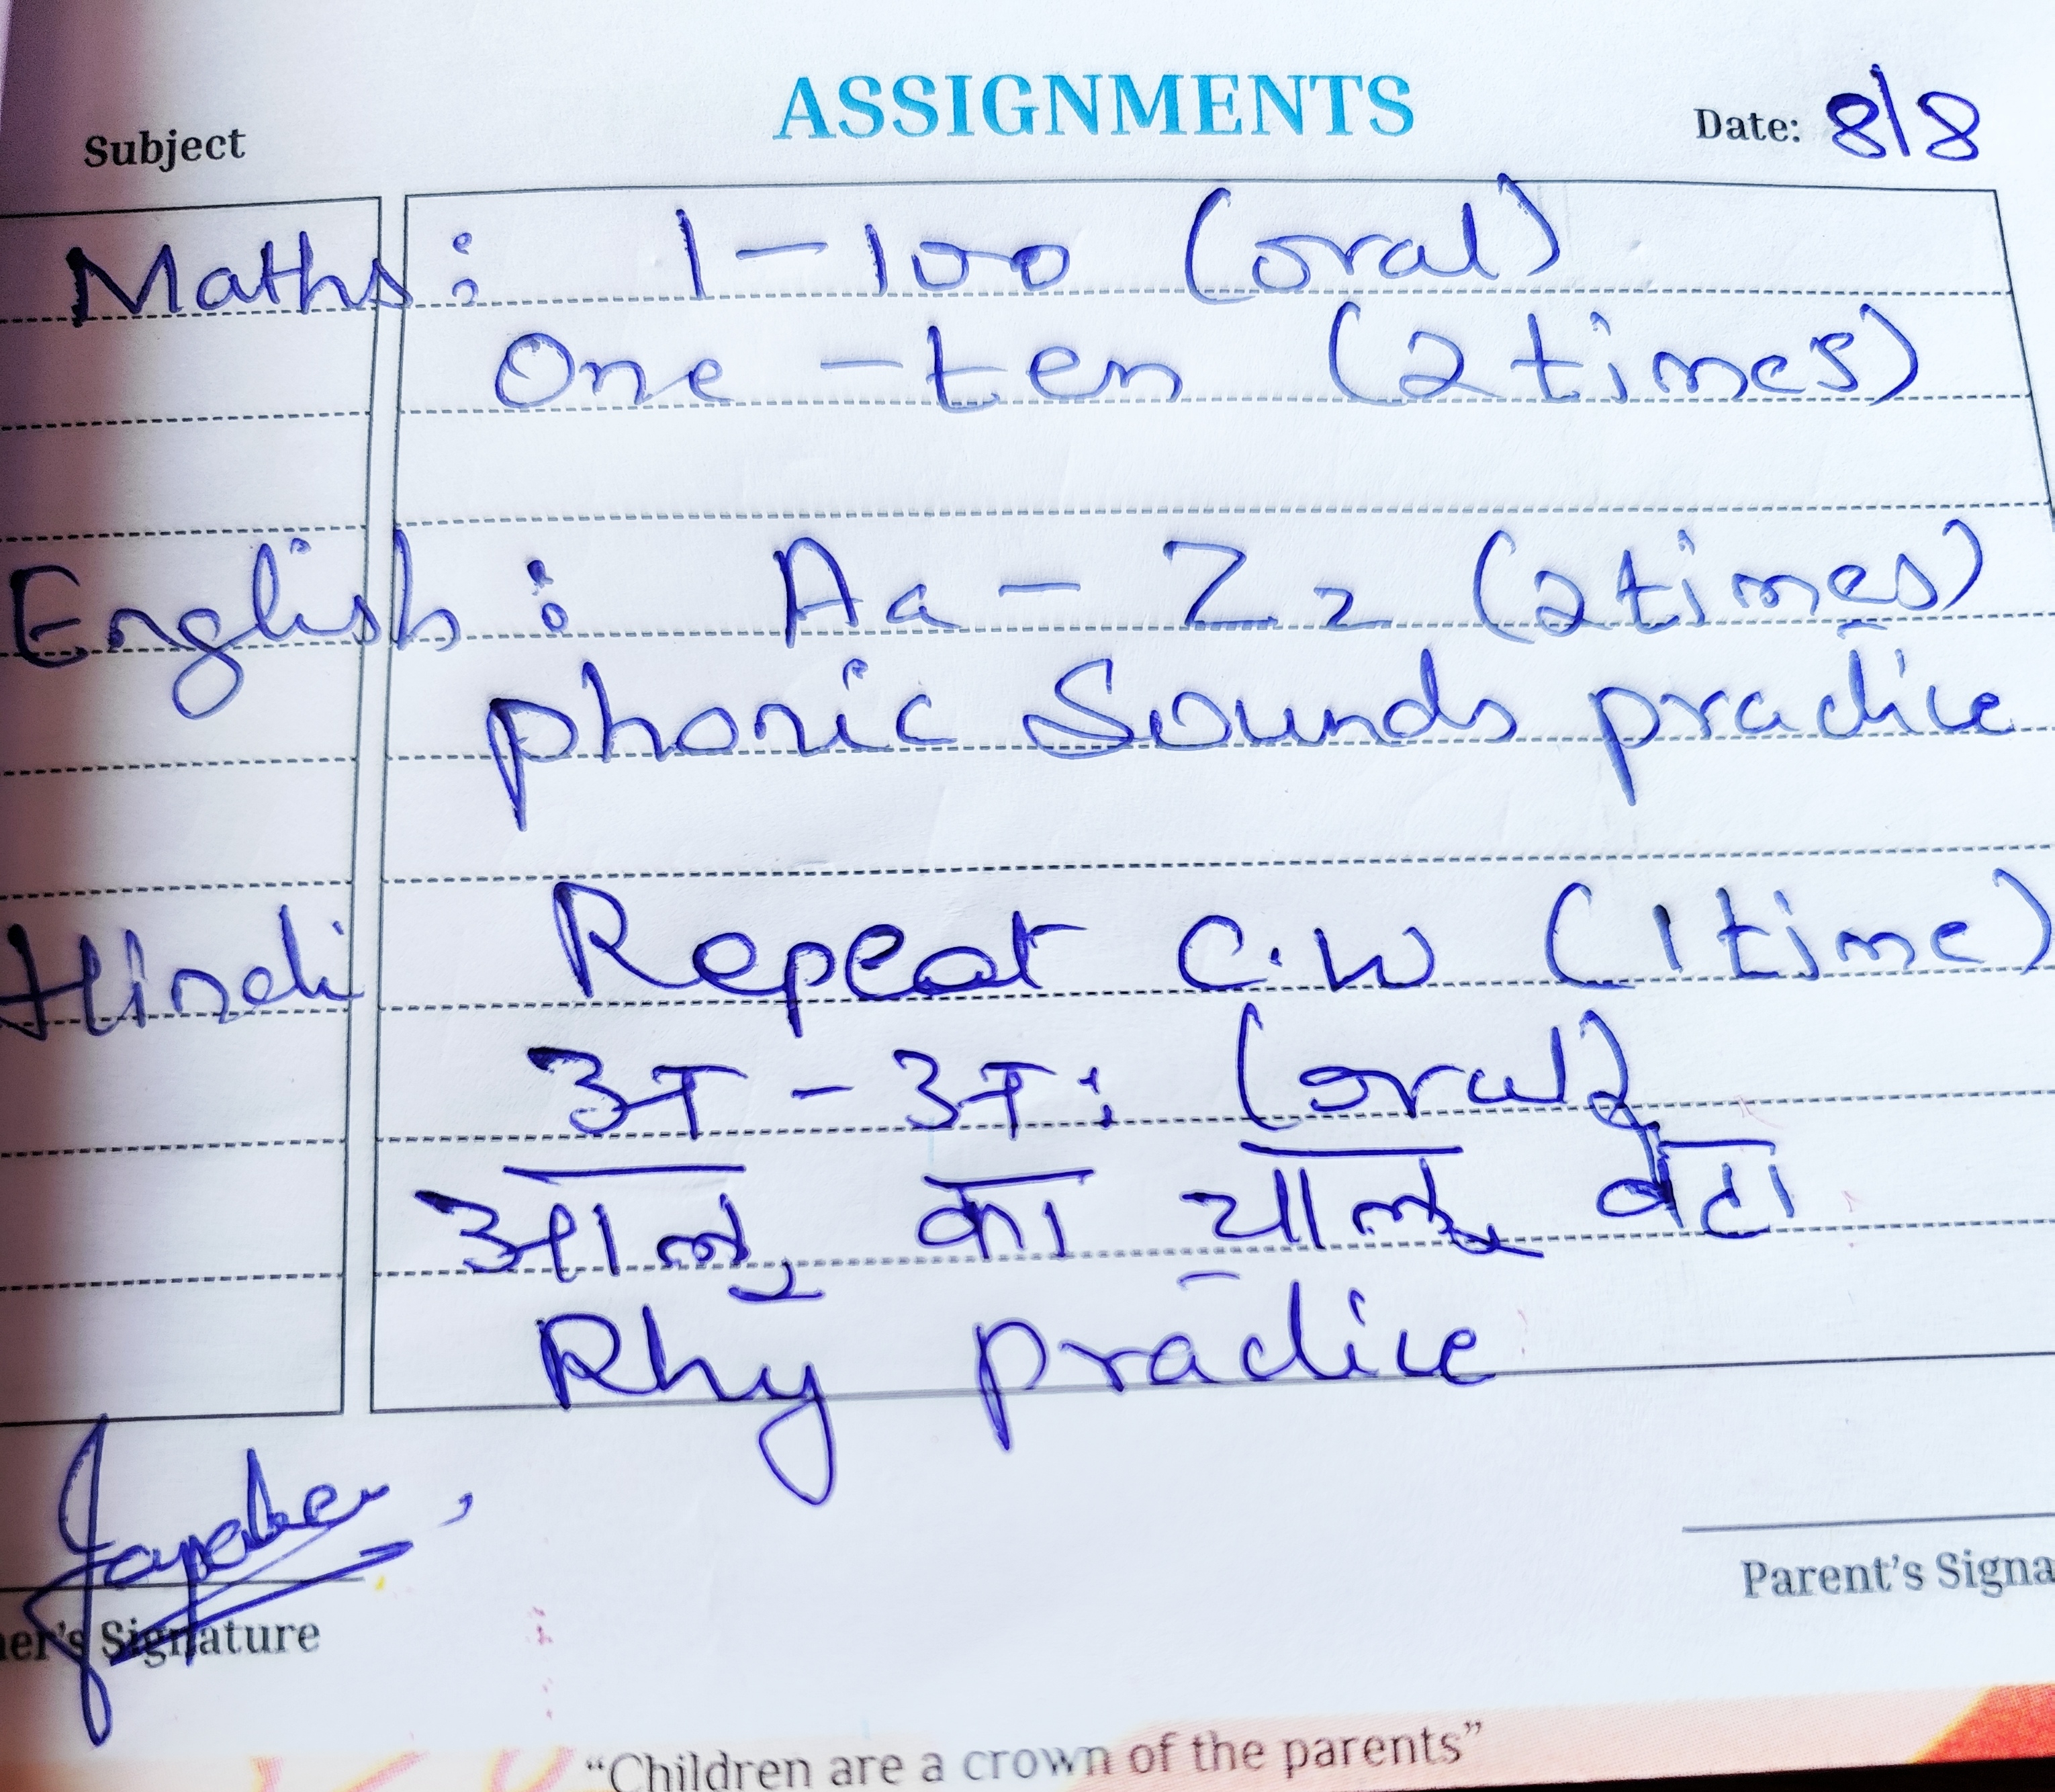 ASSIGNMENTS
Subject Date: 8/8
Maths: 1-100 (oral)
One - ten (2 times)
English: Aa - Zz (2 times)
phonic Sounds practice
Hindi Repeat C.W (1 time)
अ - अः (oral)
आलू का चालू बेटा
Rhy practice
Signature
Parent's Signa
“Children are a crown of the parents”